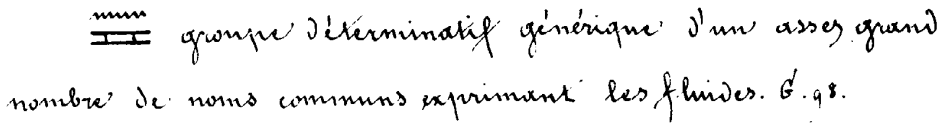 groupe déterminatif générique d'un assez grand
nombre de noms communs exprimant les fluides. G. 98.